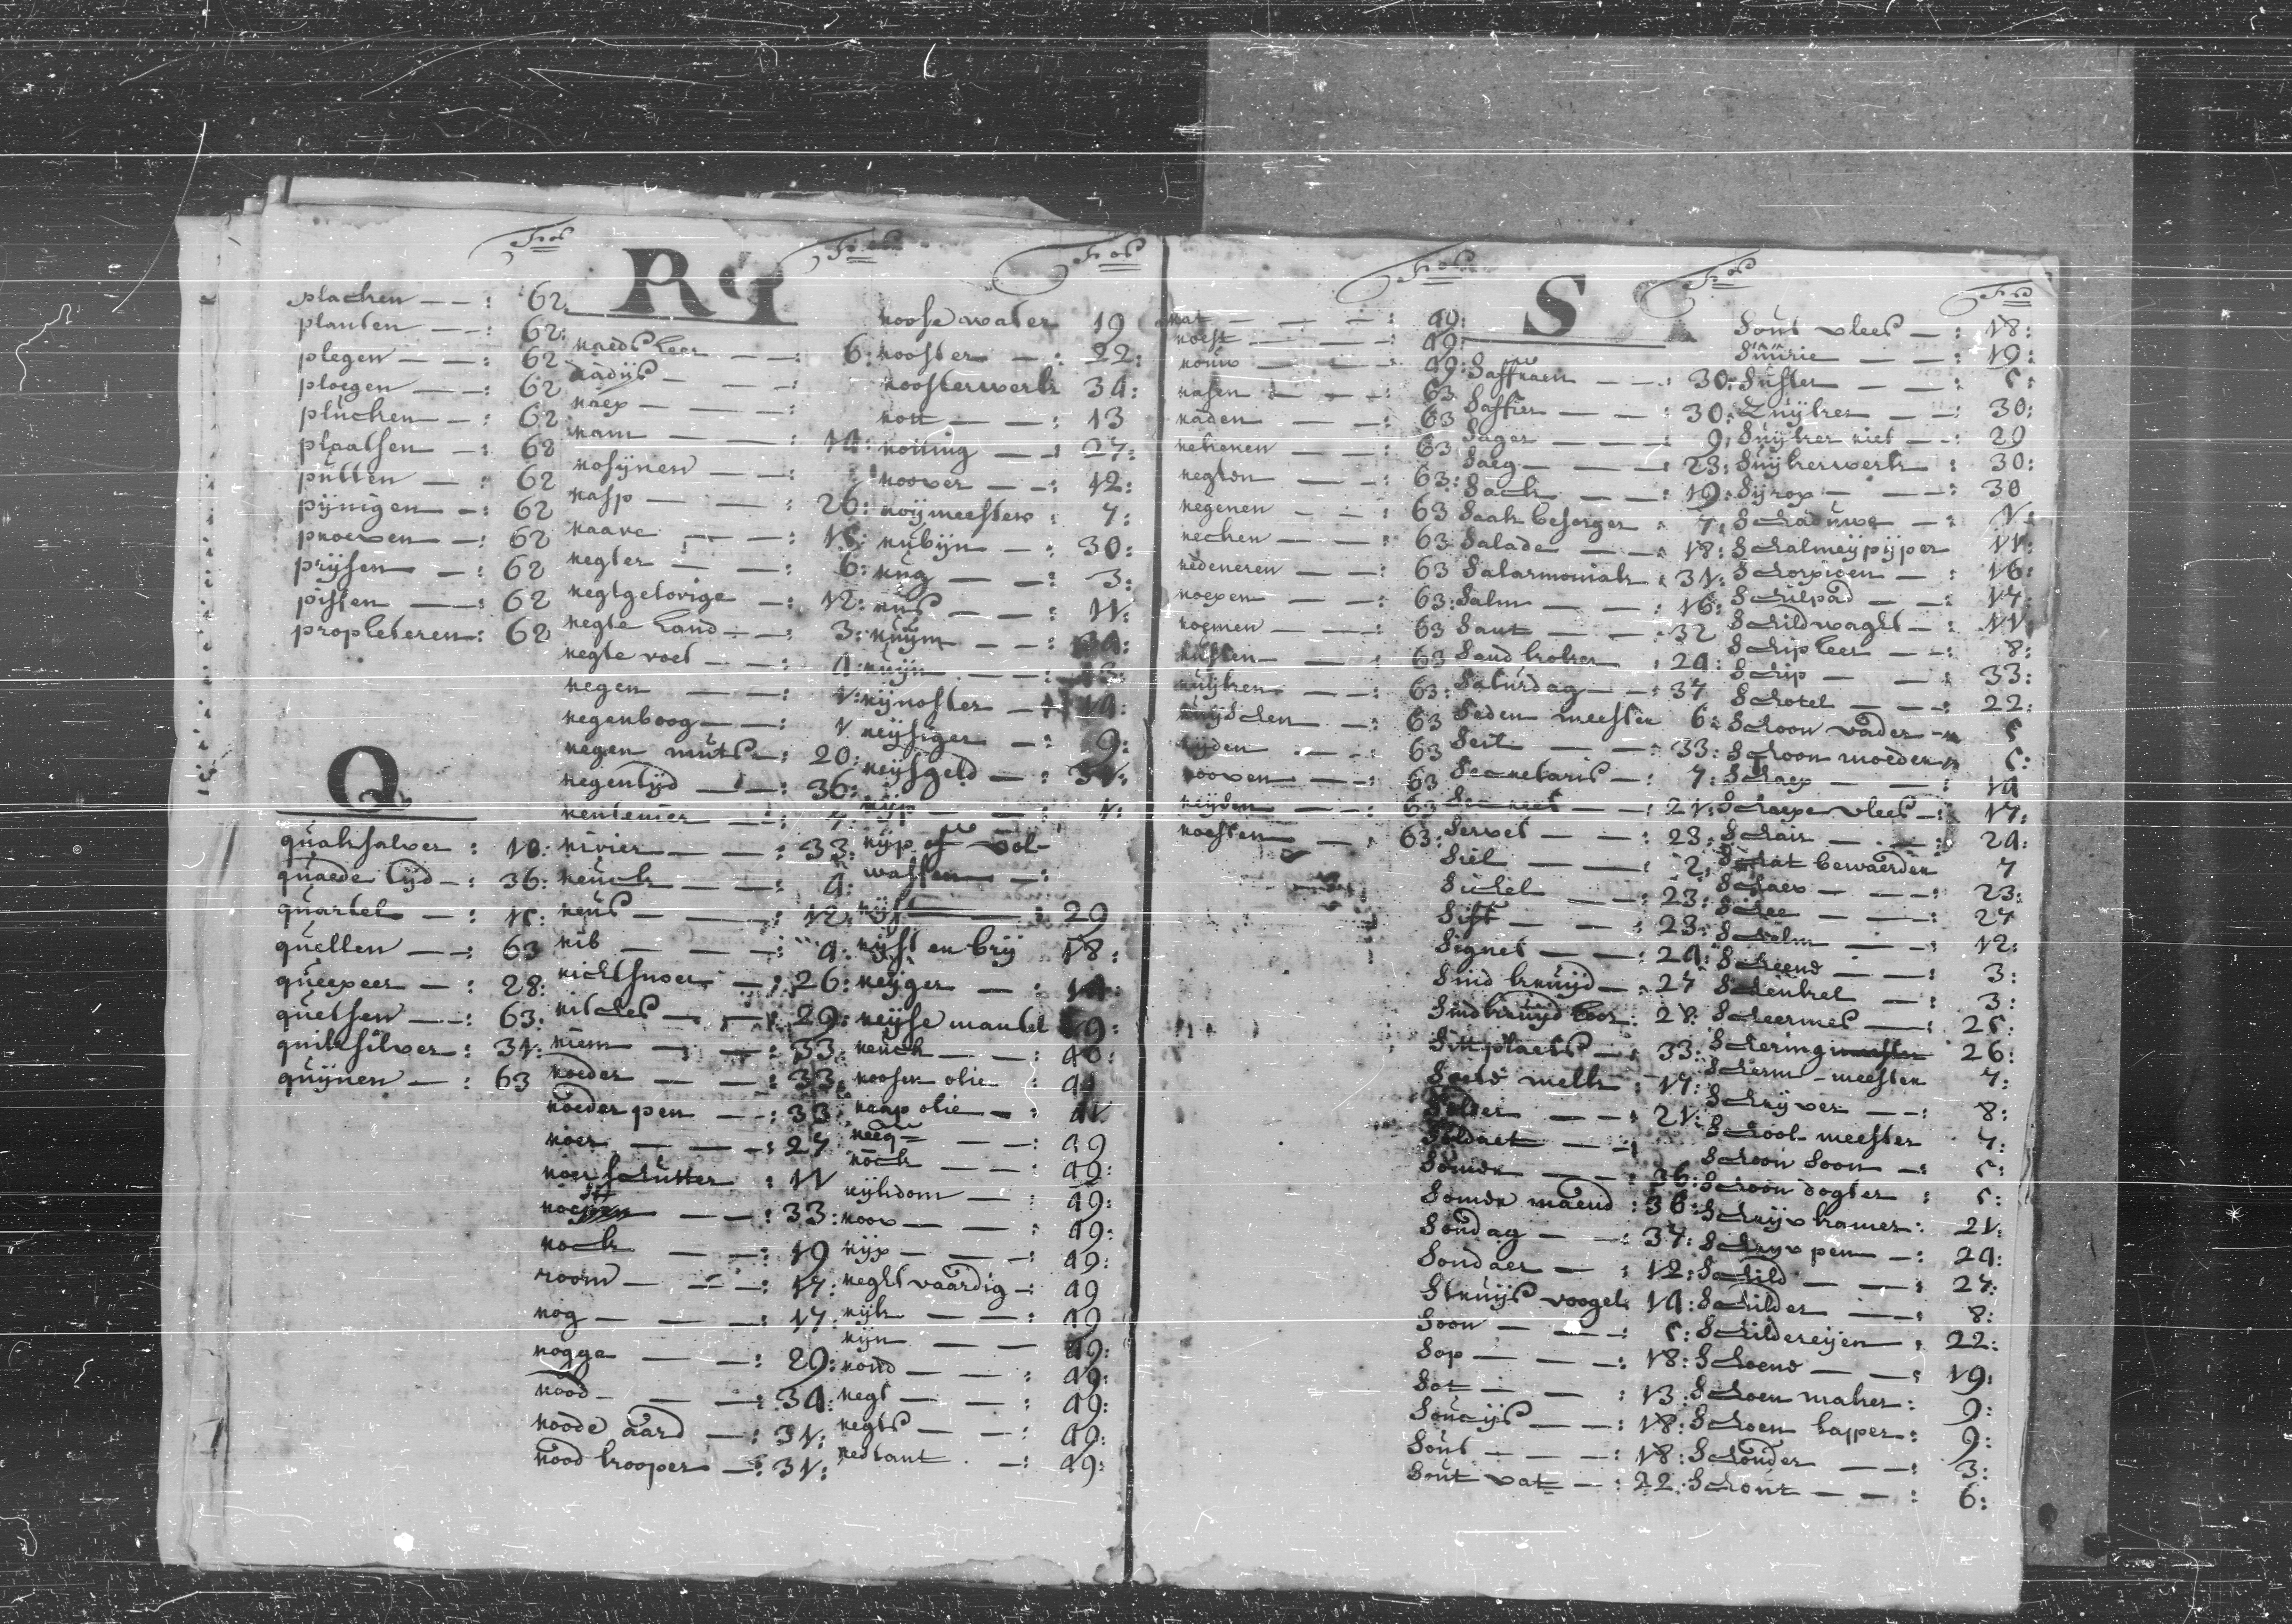 placken — — : 62
planten — — : 62:
plegen — — : 62
ploegen — — : 62
plucken — : 62
plaatsen — : 62
putten — : 62
pijnigen — : 62
proeven — : 62
prijsen — : 62
pissen — : 62
propheteren : 62
Q
quaksalver : 10:
quaede tijd — : 36:
quartel — : 15:
quellen — : 63
queepeer — : 28:
quetsen — : 63:
quiksilver : 31:
quijnen — : 63
R
raedsheer — — : 6:
radijs — — :
raep — — :
ram — — : 14:
rosijnen — :
rasp — — : 26:
raave — — : 15:
regter — — : 6:
regtgelovige — : 12:
regte hand — : 3:
regte voet — : 4:
regen — — : 1:
regenboog — : 1
regen muts — : 20:
regentijd — : 36:
rentenier — : 7:
rivier — — : 33:
reuck — — : 4:
reus — — : 12:
rib — — : 4:
richtsnoer — : 26:
ritches — : 29:
riem — — : 33:
roeder — — : 33:
roeder pen — : 33:
roer — — : 27
roer schutter : 11
rock — — : 19
room — — : 17:
rog — — : 17:
rogge — — : 29:
rood — — : 34:
roode aard — : 31:
rood krooper — : 31:
roose water 19
rooster — : 22:
roosterwerk 34:
rott — — : 13
rotting — — : 27:
roover — — : 12:
roijmeester : 7:
rubijn — : 30:
rug — — : 3:
rus — — : 11:
ruijm — — : 34:
ruijn — — : 13:
rijnoster — : 14:
reijsiger — : 9:
reijsgeld — : 31:
rijp — — : 1:
rijp of vol-
wassen — :
rijst — : 29
rijst en brij 18:
reijger — : 14:
reijse mantel 19:
reuck — — : 40:
roosen olie : 41
raap olie — : 41
reeq — — : 49
rock — — : 49:
rijkdom — : 49:
roov — — : 49:
rijp — — : 49:
reghtvaardig — : 49
rijk — — : 49
rijn — — 49:
rond — — : 49:
regt — — : 49:
regts — — : 49:
redtant — : 49:
rat — — : 49:
roest — — : 49:
rouw — — : 49:
rasen — — : 63
raden — — : 63
rekenen — : 63
regten — — : 63:
regenen — : 63
recken — : 63
redeneren — 63
roepen — — : 63:
roemen — — : 63
rusten — — : 63
ruijken — — : 63:
ruijschen — : 63
rijden — — : 63
rooven — — : 63
reijden — — : 63
roesten — — : 63:
S
Saffraen — — : 30:
Saffier — — : 30:
Sager — — : 9:
Saeg — — : 23:
Sack — — : 19:
Saak besorger : 7:
Salade — — : 18:
Salarmoniak : 31:
Salm — — : 16:
Sant — — : 32
Sand koker : 24:
Saturdag — : 37
Seden meester 6:
Seil — — : 33:
Secretaris — : 7:
Secreet — : 21:
Servet — — : 23:
Siel — — : 2:
Sickel — — : 23:
Sift — — : 23:
Signet — — : 24:
Sind kruijd — : 27
Sind kruijd koor : 28:
Sit plaets — : 33:
Soete melk : 17:
Solder — — : 21:
Soldaet — :
Somer — — : 36:
Somer maend : 36:
Sondag — — : 37:
Sondaer — : 12:
Struijs voogel : 14:
Soon — — : 5:
Sop — — : 18:
Sot — — : 13:
Soucijs — — : 18:
Sout — — : 18:
Sout vat — : 22:
Sout vlees — : 18:
Suurie — — : 19:
Suster — — : 5:
Zuijker — — : 30:
Suijker riet — : 29
Suijkerwerk : 30:
Sijrop — — : 30
Schaduwe — : 1:
Schalmeij pijper 11:
Schorpioen — : 16:
Schilpad — — : 17:
Schildwaght — : 11:
Schip heer — : 8:
Schip — — : 33:
Schotel — — : 22:
Schoon vader — 5
Schoon moeder 5:
Schaep — — : 14
Schaepe vlees — : 17:
Schair — — : 24:
Schat bewaerder 7
Schaer — — : 23:
Schee — — : 27
Schelm — — : 12:
Scheene — — : 3:
Schenkel — : 3:
Scheermes — : 25:
Schering 26:
Scherm - meester 7:
Schrijver — : 8:
School meester 7:
Schoon Soon — : 5:
Schoon dogter : 5:
Schrijv kamer : 21:
Schrijv pen — : 24:
Schild — — : 27:
Schilder — : 8:
Schildereijen : 22:
Schoene — — : 19:
Schoen maker : 9:
Schoen lapper : 9:
Schouder — : 3:
Schout — — : 6: